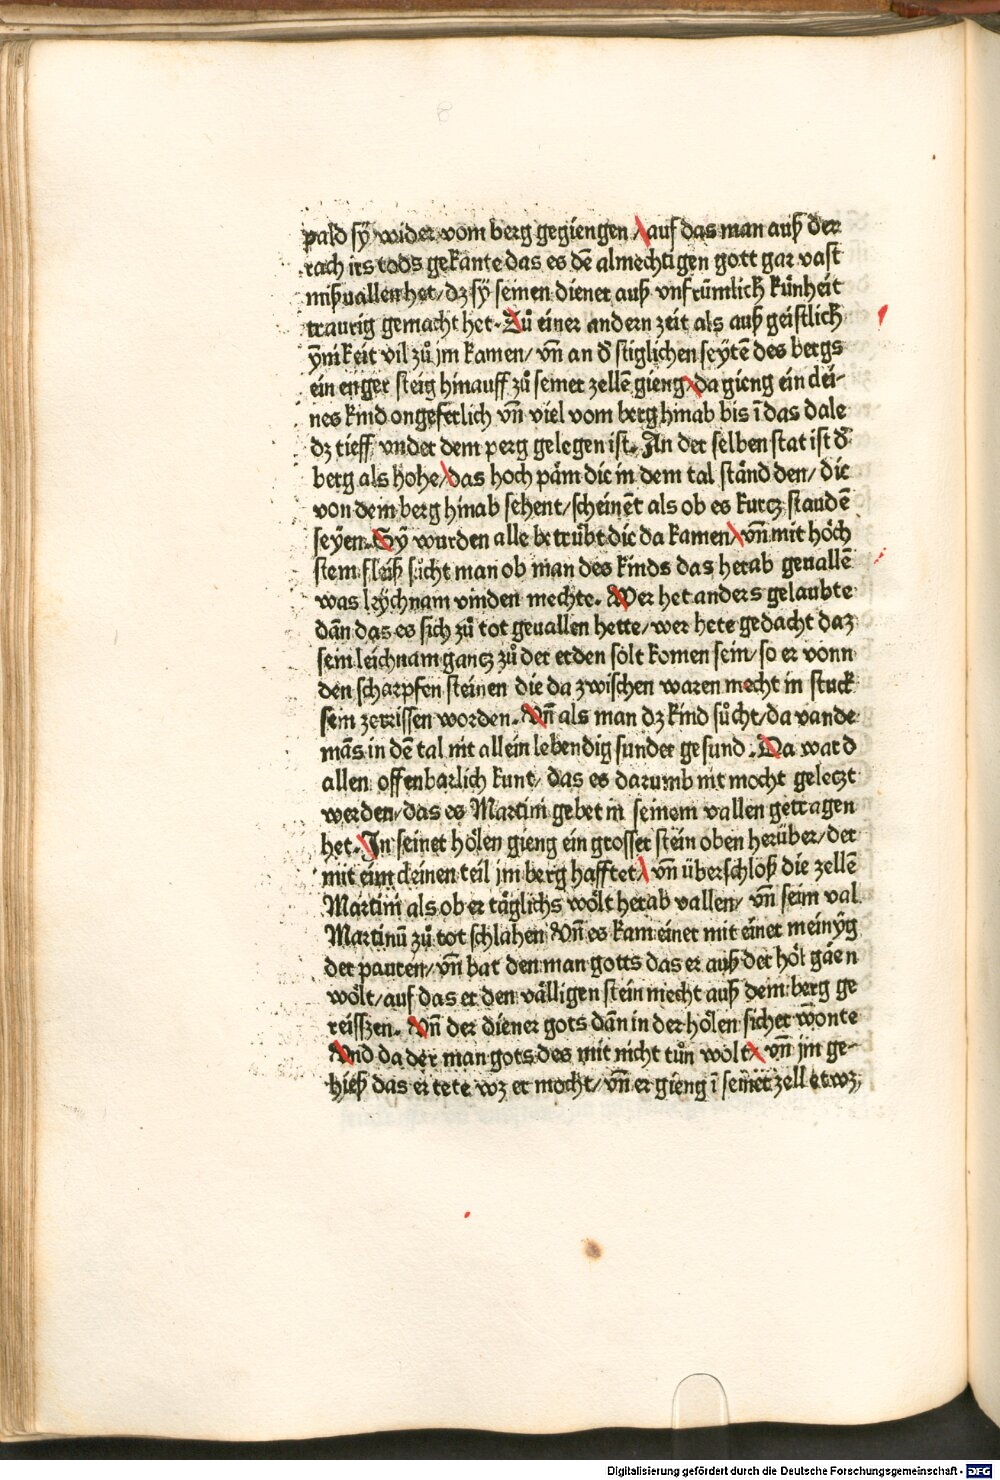 pald sÿ wider vom berg gegiengen / auf das man auß der
rach irs tods gekante das es dē almechtigen gott gar vast
mißuallen het / dz sÿ seinen diener auß vnfrümlich künheit
traurig gemacht het. Zů einer andern zeit als auß geistlich
ÿnikeit vil zů jm kamen / vn̄ an d̕ stiglichen seÿtē des bergs
ein enger steig hinauff zů seiner zellē gieng / da gieng ein clei-
nes kind ongeferlich vn̄ viel vom berg hinab bis ī das dale
dz tieff vnder dem perg gelegen ist. An der selben stat ist d̕
berg als hohe / das hoch päm die in dem tal ständ den / die
von dem berg hinab sehent / scheinēt als ob es kurcz staudē
seÿen. Sÿ wurden alle betrübt die da kamen / vn̄ mit höch
stem fleiß sůcht man ob man des kinds das herab geuallē
was leÿchnam vinden mechte. Wer het anders gelaubte
dān das es sich zů tot geuallen hette / wer hete gedacht daz
sein leichnam gancz zů der erden solt komen sein / so er vonn
den scharpfen steinen die da zwischen waren mecht in stuck
sein zerrissen worden. Vn̄ als man dz kind sůcht / da vande
mās in dē tal nit allein lebendig sunder gesund. Da ward
allen offenbarlich kunt / das es darumb nit mocht geleczt
werden / das es Martini gebet in seinem vallen getragen
het. In seiner hölen gieng ein grosser stein oben herüber / der
mit eim cleinen teil jm berg hafftet / vn̄ überschloß die zellē
Martini als ob er täglichs wölt herab vallen / vn̄ seim val
Martinū zů tot schlahen Vn̄ es kam einer mit einer meinÿg
der pauren / vn̄ bat den man gotts das er auß der höl gäen
wölt / auf das er den välligen stein mecht auß dem berg ge
reissen. Vn̄ der diener gots dān in der hölen sicher wonte
Vnd da der man gots des mit nicht tůn wolt / vn̄ jm ge-
hieß das er tete wz er mocht / vn̄ er gieng ī seiner zell etwz
Digitalisierung gefördert durch die Deutsche Forschungsgemeinschaft - DFG